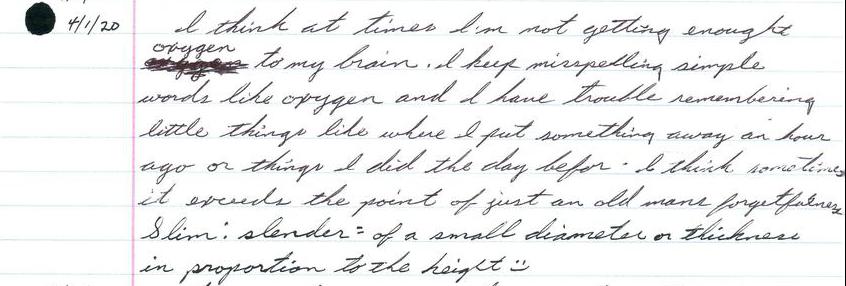 4/1/20 I think at times I'm not getting enought
oxygen
to my brain. I keep misspelling simple
words like oxygen and I have trouble remembering
little things like where I put something away an hour
ago or things I did the day befor. I think sometimes
it exceeds the point of just an old mans forgetfulness
Slim: slender = of a small diameter or thickness
in proportion to the height :)